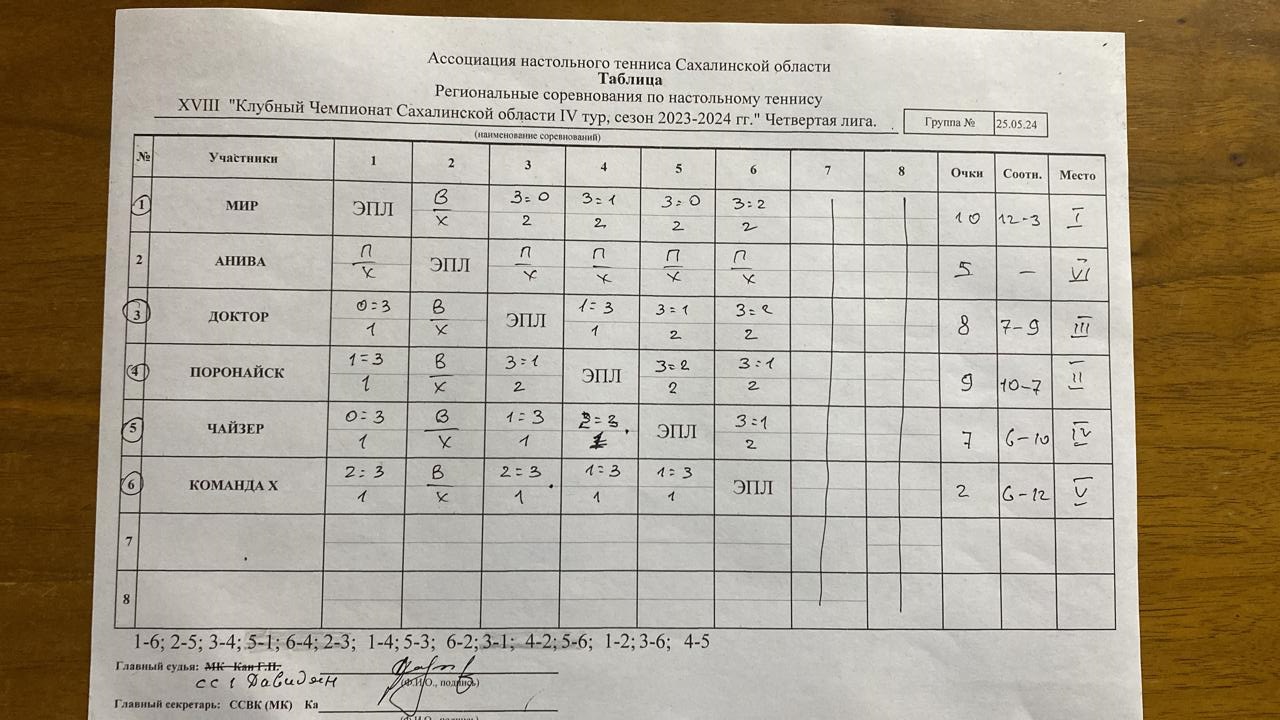 Ассоциация настольного тенниса Сахалинской области
Таблица
Региональные соревнования по настольному теннису
XVIII "Клубный Чемпионат Сахалинской области IV тур, сезон 2023-2024 гг." Четвертая лига.
Группа № 25.05.24
(наименование соревнований)
№ Участники 1 2 3 4 5 6 7 8 Очки Соотн. Место
1 МИР ЭПЛ В/Х 3=0 3=1 3=0 3=2 10 12-3 I
2 2 2 2
2 АНИВА П/Х ЭПЛ П/Х П/Х П/Х П/Х 5 – VI
3 ДОКТОР 0=3 В/Х ЭПЛ 1=3 3=1 3=2 8 7-9 III
1 1 2 2
4 ПОРОНАЙСК 1=3 В/Х 3=1 ЭПЛ 3=2 3=1 9 10-7 II
1 2 2 2
5 ЧАЙЗЕР 0=3 В/Х 1=3 2=3 ЭПЛ 3=1 7 6-10 IV
1 1 1 2
6 КОМАНДА Х 2=3 В/Х 2=3 1=3 1=3 ЭПЛ 2 6-12 V
1 1 1 1
7
8
1-6; 2-5; 3-4; 5-1; 6-4; 2-3; 1-4; 5-3; 6-2; 3-1; 4-2; 5-6; 1-2; 3-6; 4-5
Главный судья: МК Кан Г.Н.
сс 1 Давидян
(Ф.И.О., подпись)
Главный секретарь: ССВК (МК) Ка
(Ф.И.О., подпись)